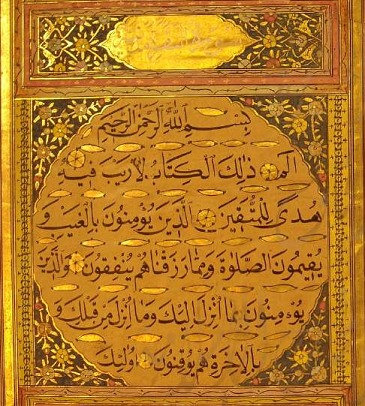 بِسْمِ اللَّهِ الرَّحْمٰنِ الرَّحِيمِ
الٓمٓ ذٰلِكَ الْكِتَابُ لَا رَيْبَ فِيهِ
هُدًى لِلْمُتَّقِينَ الَّذِينَ يُؤْمِنُونَ بِالْغَيْبِ وَ
يُقِيمُونَ الصَّلٰوةَ وَمِمَّا رَزَقْنَاهُمْ يُنْفِقُونَ وَالَّذِينَ
يُؤْمِنُونَ بِمَا أُنْزِلَ إِلَيْكَ وَمَا أُنْزِلَ مِنْ قَبْلِكَ وَ
بِالْآخِرَةِ هُمْ يُوقِنُونَ أُولٰئِكَ